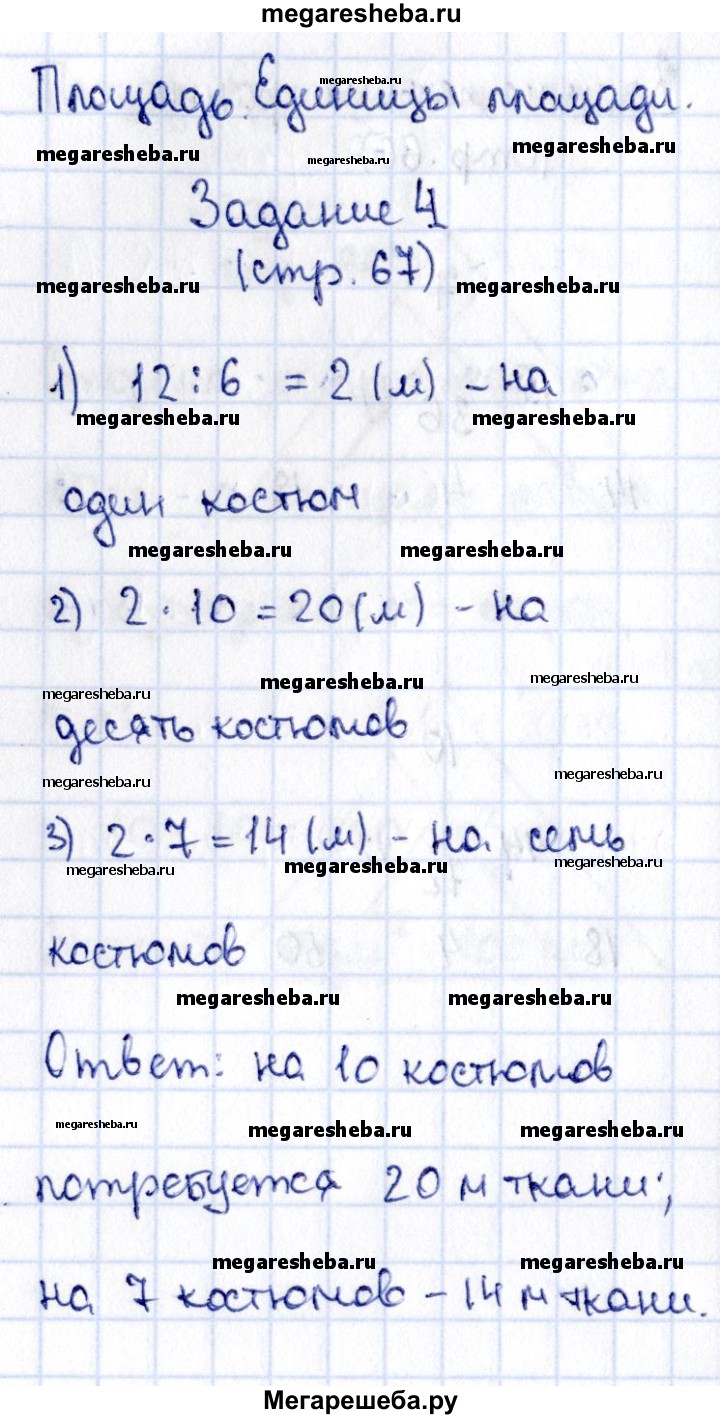 megaresheba.ru
Площадь. Единицы площади.
megaresheba.ru
megaresheba.ru megaresheba.ru megaresheba.ru
Задание 4
(стр. 67)
megaresheba.ru megaresheba.ru
1) 12 : 6 = 2 (м) - на
megaresheba.ru megaresheba.ru
один костюм
megaresheba.ru megaresheba.ru
2) 2 · 10 = 20 (м) - на
megaresheba.ru megaresheba.ru megaresheba.ru
десять костюмов
megaresheba.ru megaresheba.ru
3) 2 · 7 = 14 (м) - на семь
megaresheba.ru megaresheba.ru megaresheba.ru
костюмов
megaresheba.ru megaresheba.ru
Ответ: на 10 костюмов
megaresheba.ru megaresheba.ru megaresheba.ru
потребуется 20 м ткани;
megaresheba.ru megaresheba.ru
на 7 костюмов - 14 м ткани.
Мегарешеба.ру